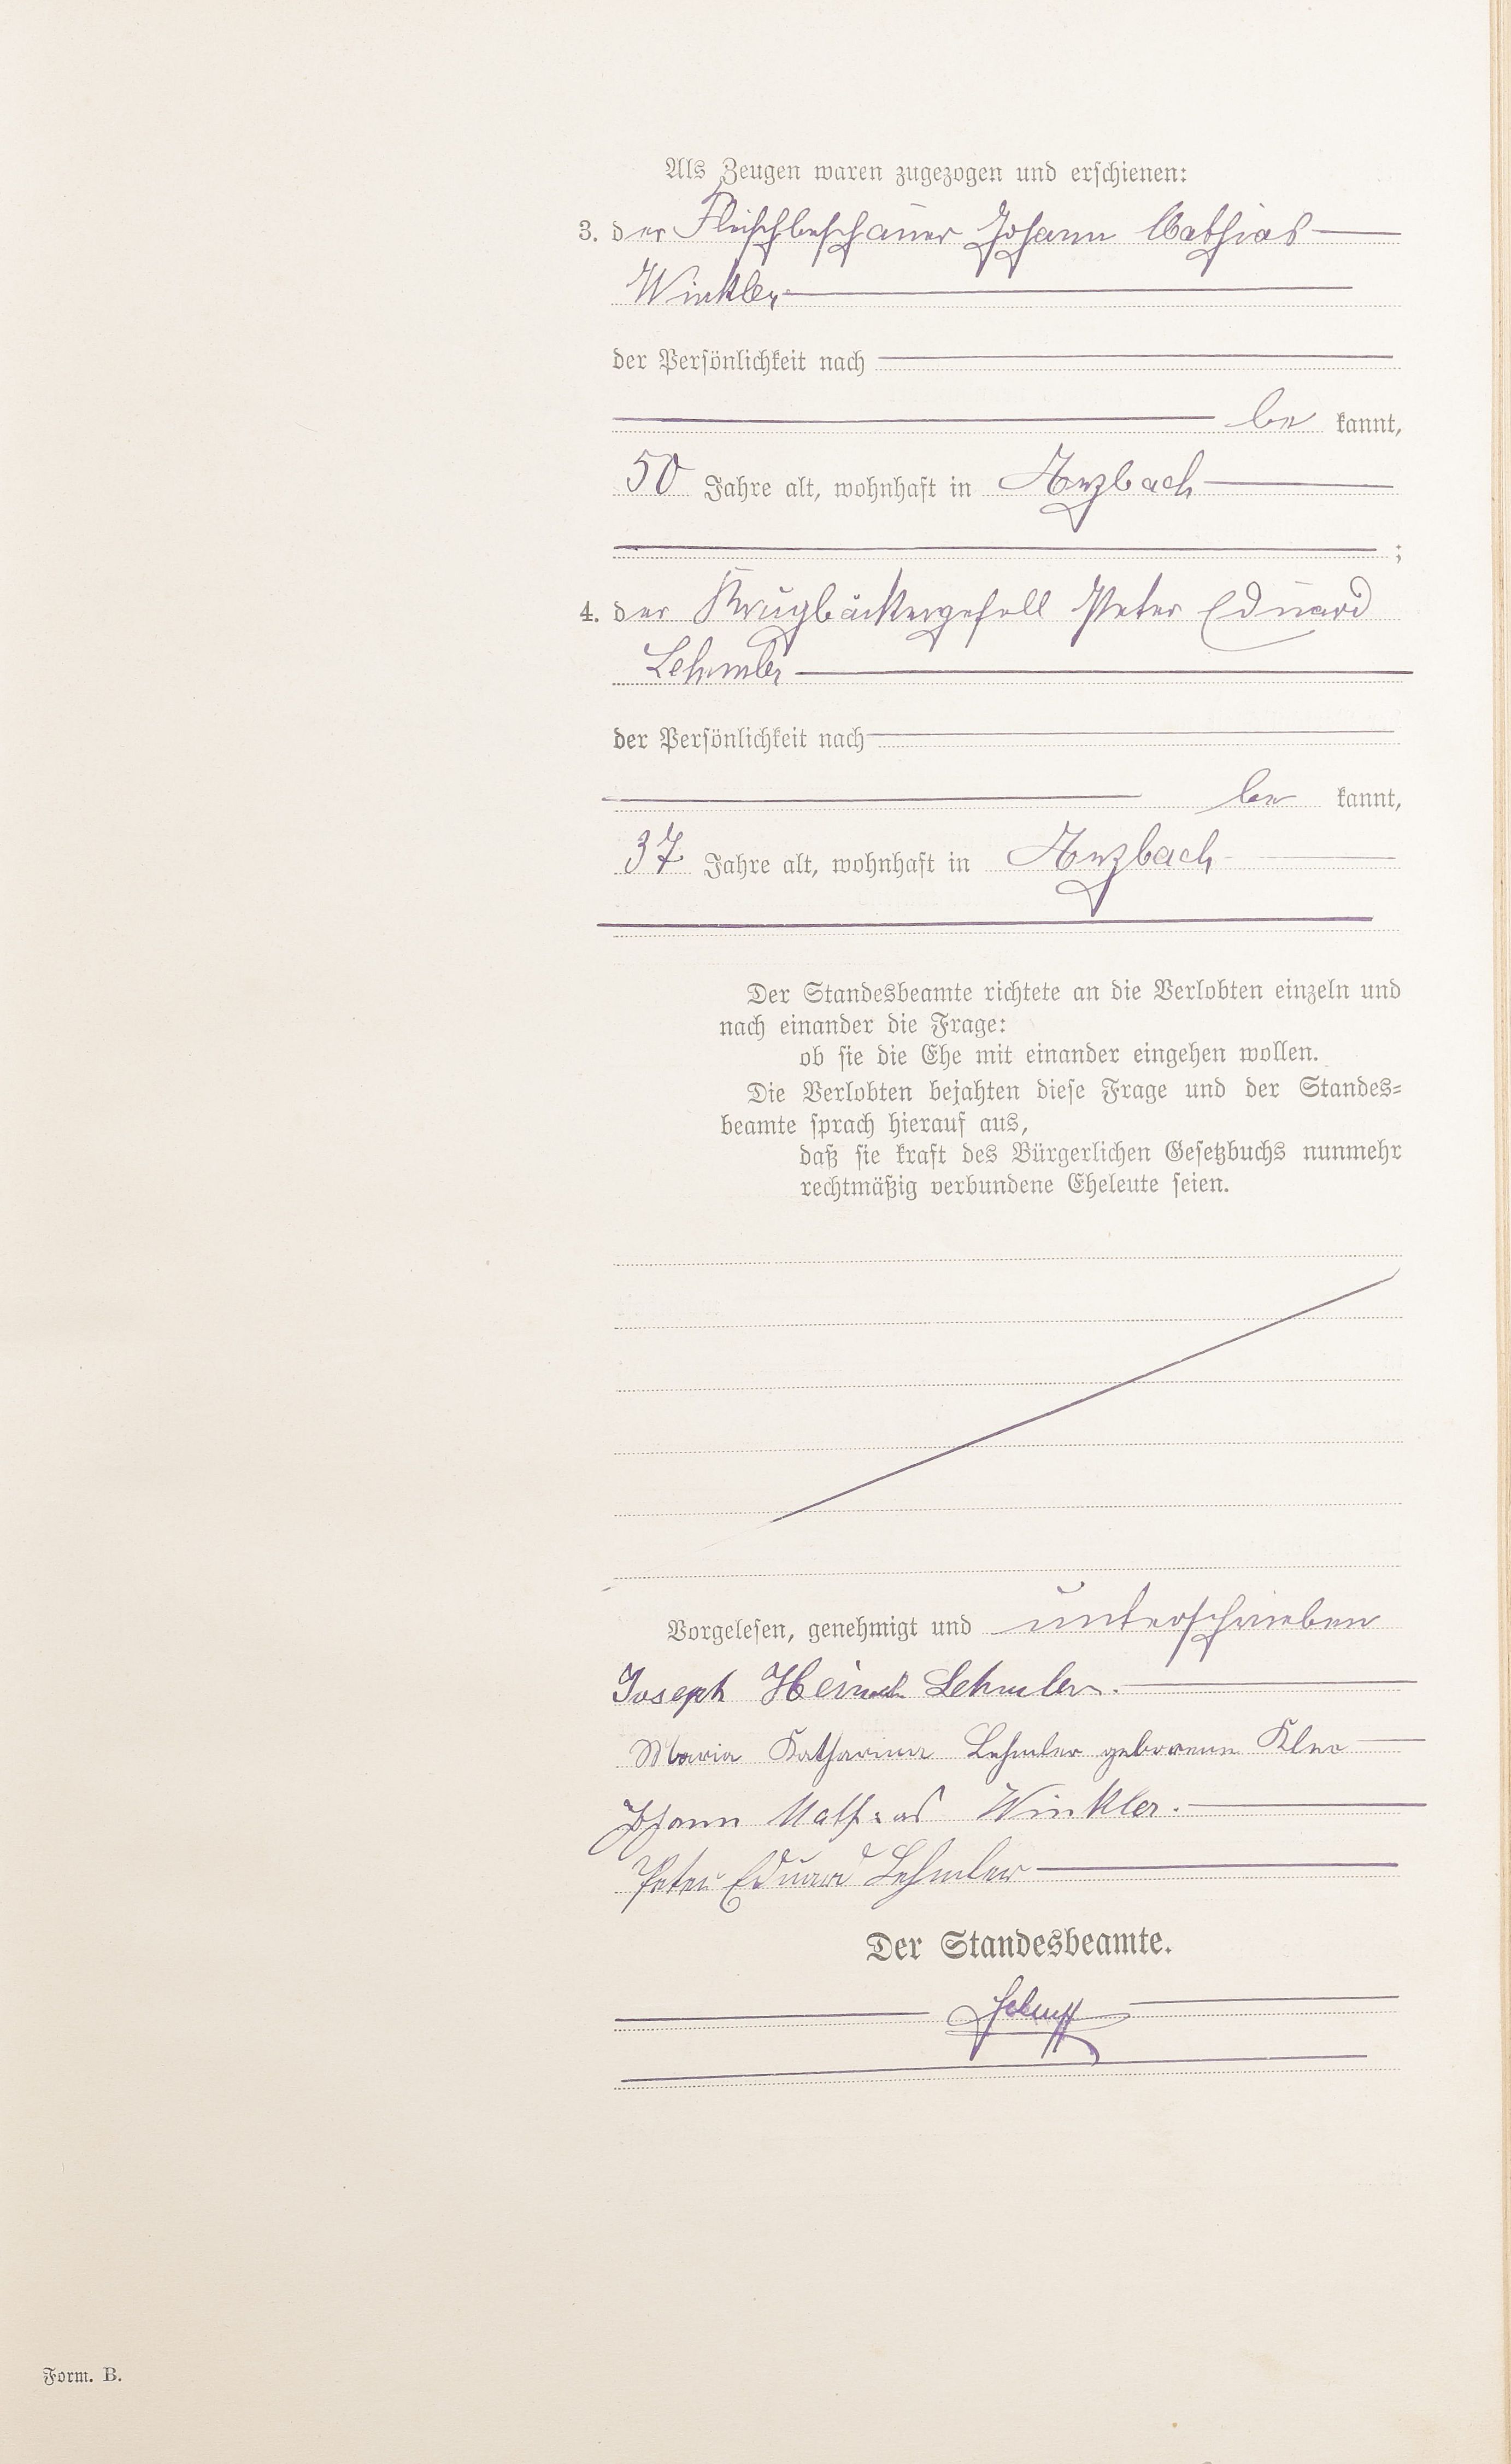 Als Zeugen waren zugezogen und erschienen:
3. der Fleischbeschauer Johann Mathias
Winkler
der Persönlichkeit nach
be kannt,
50 Jahre alt, wohnhaft in Arzbach
;
4. der Krugbäckergesell Peter Eduard
Lehmler
der Persönlichkeit nach
be kannt,
37 Jahre alt, wohnhaft in Arzbach
Der Standesbeamte richtete an die Verlobten einzeln und
nach einander die Frage:
ob sie die Ehe mit einander eingehen wollen.
Die Verlobten bejahten diese Frage und der Standes-
beamte sprach hierauf aus,
daß sie kraft des Bürgerlichen Gesetzbuchs nunmehr
rechtmäßig verbundene Eheleute seien.
Vorgelesen, genehmigt und unterschrieben
Joseph Lehmler.
Maria Katharina Lehmler geborene Klee
Johann Mathias Winkler.
Peter Eduard Lehmler
Der Standesbeamte.
Form. B.